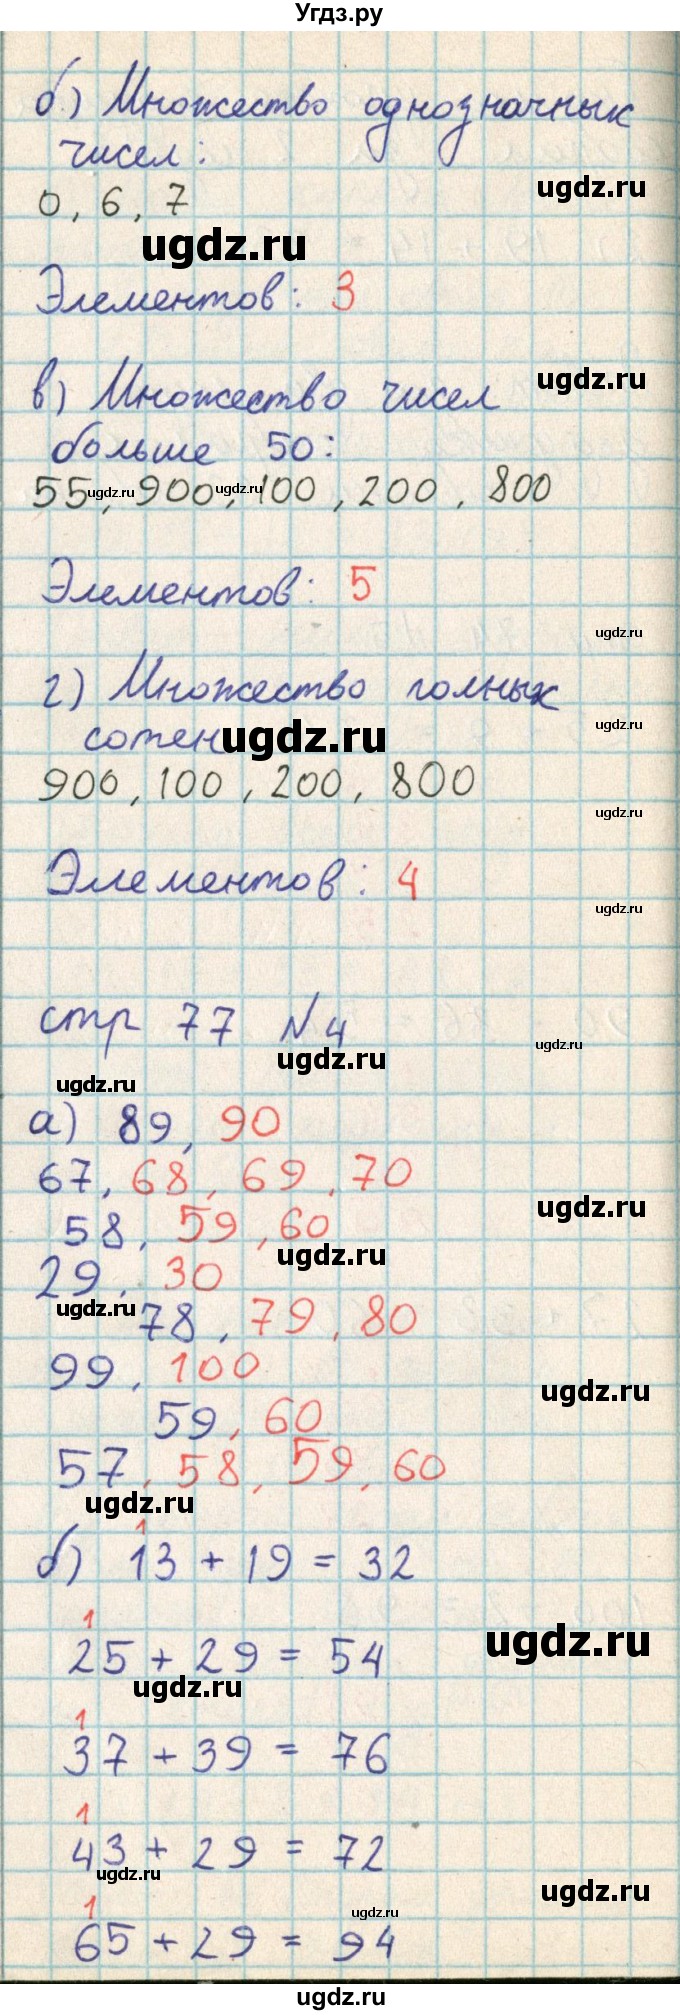 Угдз.ру
б) Множество однозначных
чисел:
ugdz.ru
0, 6, 7
ugdz.ru
Элементов: 3
ugdz.ru
в) Множество чисел
больше 50:
55, 900, 100, 200, 800
ugdz.ru ugdz.ru
Элементов: 5
ugdz.ru
г) Множество полных
ugdz.ru
сотен
ugdz.ru
900, 100, 200, 800
ugdz.ru
Элементов: 4
ugdz.ru
стр 77 №4
ugdz.ru
ugdz.ru
ugdz.ru
а) 89, 90
67, 68, 69, 70
ugdz.ru
58, 59, 60
ugdz.ru
29, 30
ugdz.ru
78, 79, 80
99, 100
ugdz.ru
59, 60
57, 58, 59, 60
ugdz.ru
1
б) 13 + 19 = 32
1
ugdz.ru
25 + 29 = 54
ugdz.ru
1
37 + 39 = 76
1
43 + 29 = 72
ugdz.ru
ugdz.ru
1
ugdz.ru
65 + 29 = 94
ugdz.ru